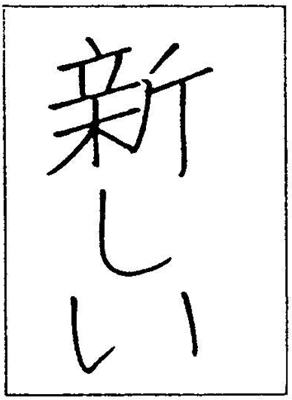 新しい